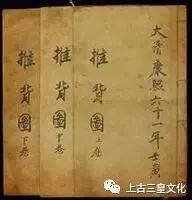 大清康熙六十一年壬寅
推背圖上卷
推背圖中卷
推背圖下卷
上古三皇文化